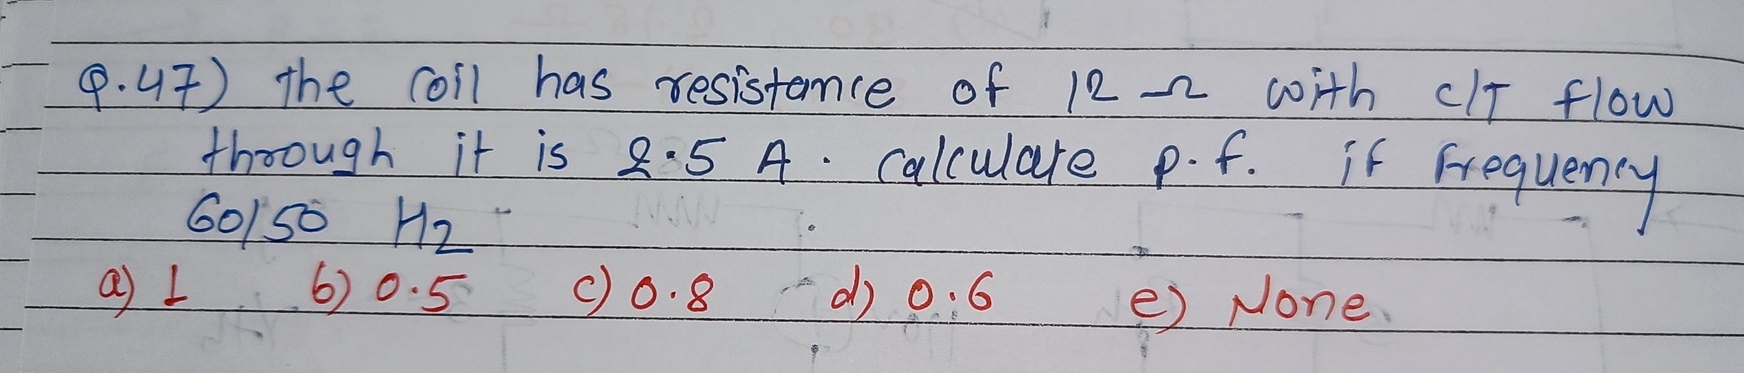 Q.47) The coil has resistance of 12 Ω with c/T flow
through it is 2.5 A. calculate p.f. if frequency
60/50 Hz
a) 1 b) 0.5 c) 0.8 d) 0.6 e) None